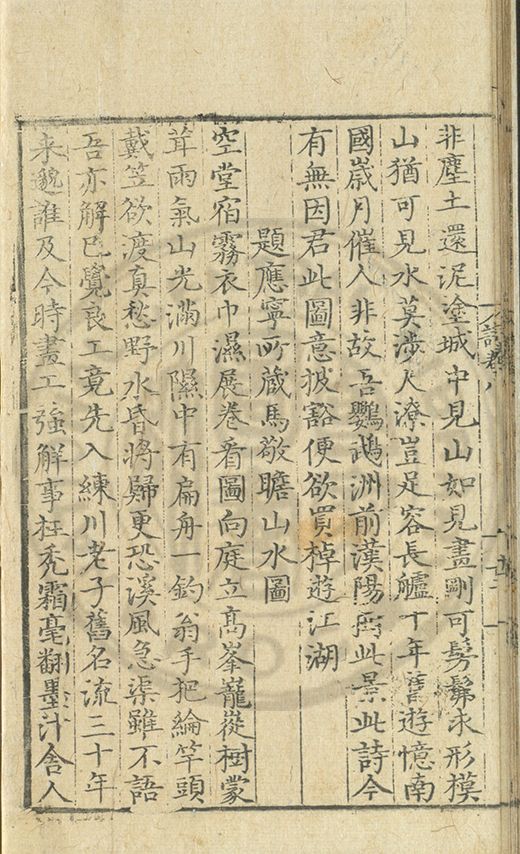 非塵土還泥塗城中見山如見畫剛可髣髴求形模
山猶可見水莫涉久潦豈足容長艫十年舊遊憶南
國歲月催人非故吾鸚鵡洲前漢陽西此景此詩今
有無因君此圖意披豁便欲買棹遊江湖
題應寧所藏馬敬瞻山水圖
空堂宿霧衣巾濕展卷看圖向庭立高峯巃嵸樹蒙
茸雨氣山光滿川隰中有扁舟一釣翁手把綸竿頭
戴笠欲渡真愁野水昏將歸更恐溪風急渠雖不語
吾亦解已覺良工竟先入練川老子舊名流三十年
来邈誰及今時畫工強解事枉禿霜毫翻墨汁舍人
詩卷八